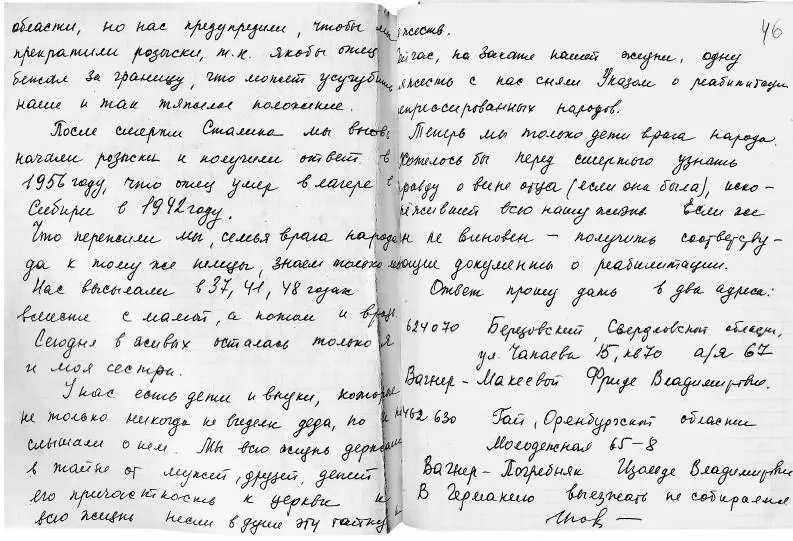 области, но нас предупредили, чтобы мы
прекратили розыски, т.к. якобы отец
бежал за границу, что может усугубить
наше и так тяжелое положение.
После смерти Сталина мы вновь
начали розыски и получили ответ в
1956 году, что отец умер в лагере в
Сибири в 1942 году.
Что пережили мы, семья врага народа
да к тому же немцы, знаем только мы
Нас высылали в 37, 41, 48 годах
вместе с мамой, а потом и врозь.
Сегодня в живых осталась только я
и моя сестра.
У нас есть дети и внуки, которые
не только никогда не видели деда, но и не
слышали о нем. Мы всю жизнь держали
в тайне от мужей, друзей, детей
его причастность к церкви и
всю жизнь несли в душе эту тайну и
46
тяжесть.
Сейчас, на закате нашей жизни, одну
тяжесть с нас сняли Указом о реабилитации
репрессированных народов.
Теперь мы только дети врага народа.
Хотелось бы перед смертью узнать
правду о вине отца (если она была), иско-
режившей всю нашу жизнь. Если же
он не виновен – получить соответству-
ющие документы о реабилитации.
Ответ прошу дать в два адреса:
624070 Березовский, Свердловской области,
ул. Чапаева 15, кв 70 а/я 67
Вагнер-Макеевой Фриде Владимировне.
462 630 Гай, Оренбургской области
Молодежная 65-8
Вагнер-Погребняк Изольде Владимировне
В Германию выезжать не собираемся